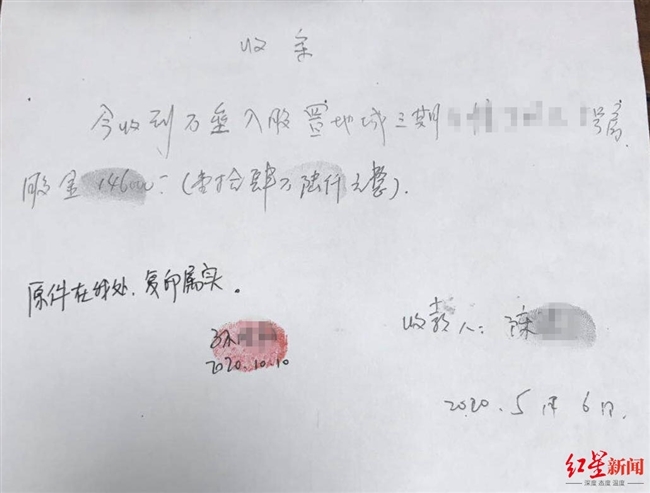 收条
今收到万
入股置地城三期
号房
股金14600(壹拾肆万陆仟元整).
原件在我处，复印属实。
孙
2020.10.10
收款人：
2020.5月6日.
红星新闻
深度 态度 温度